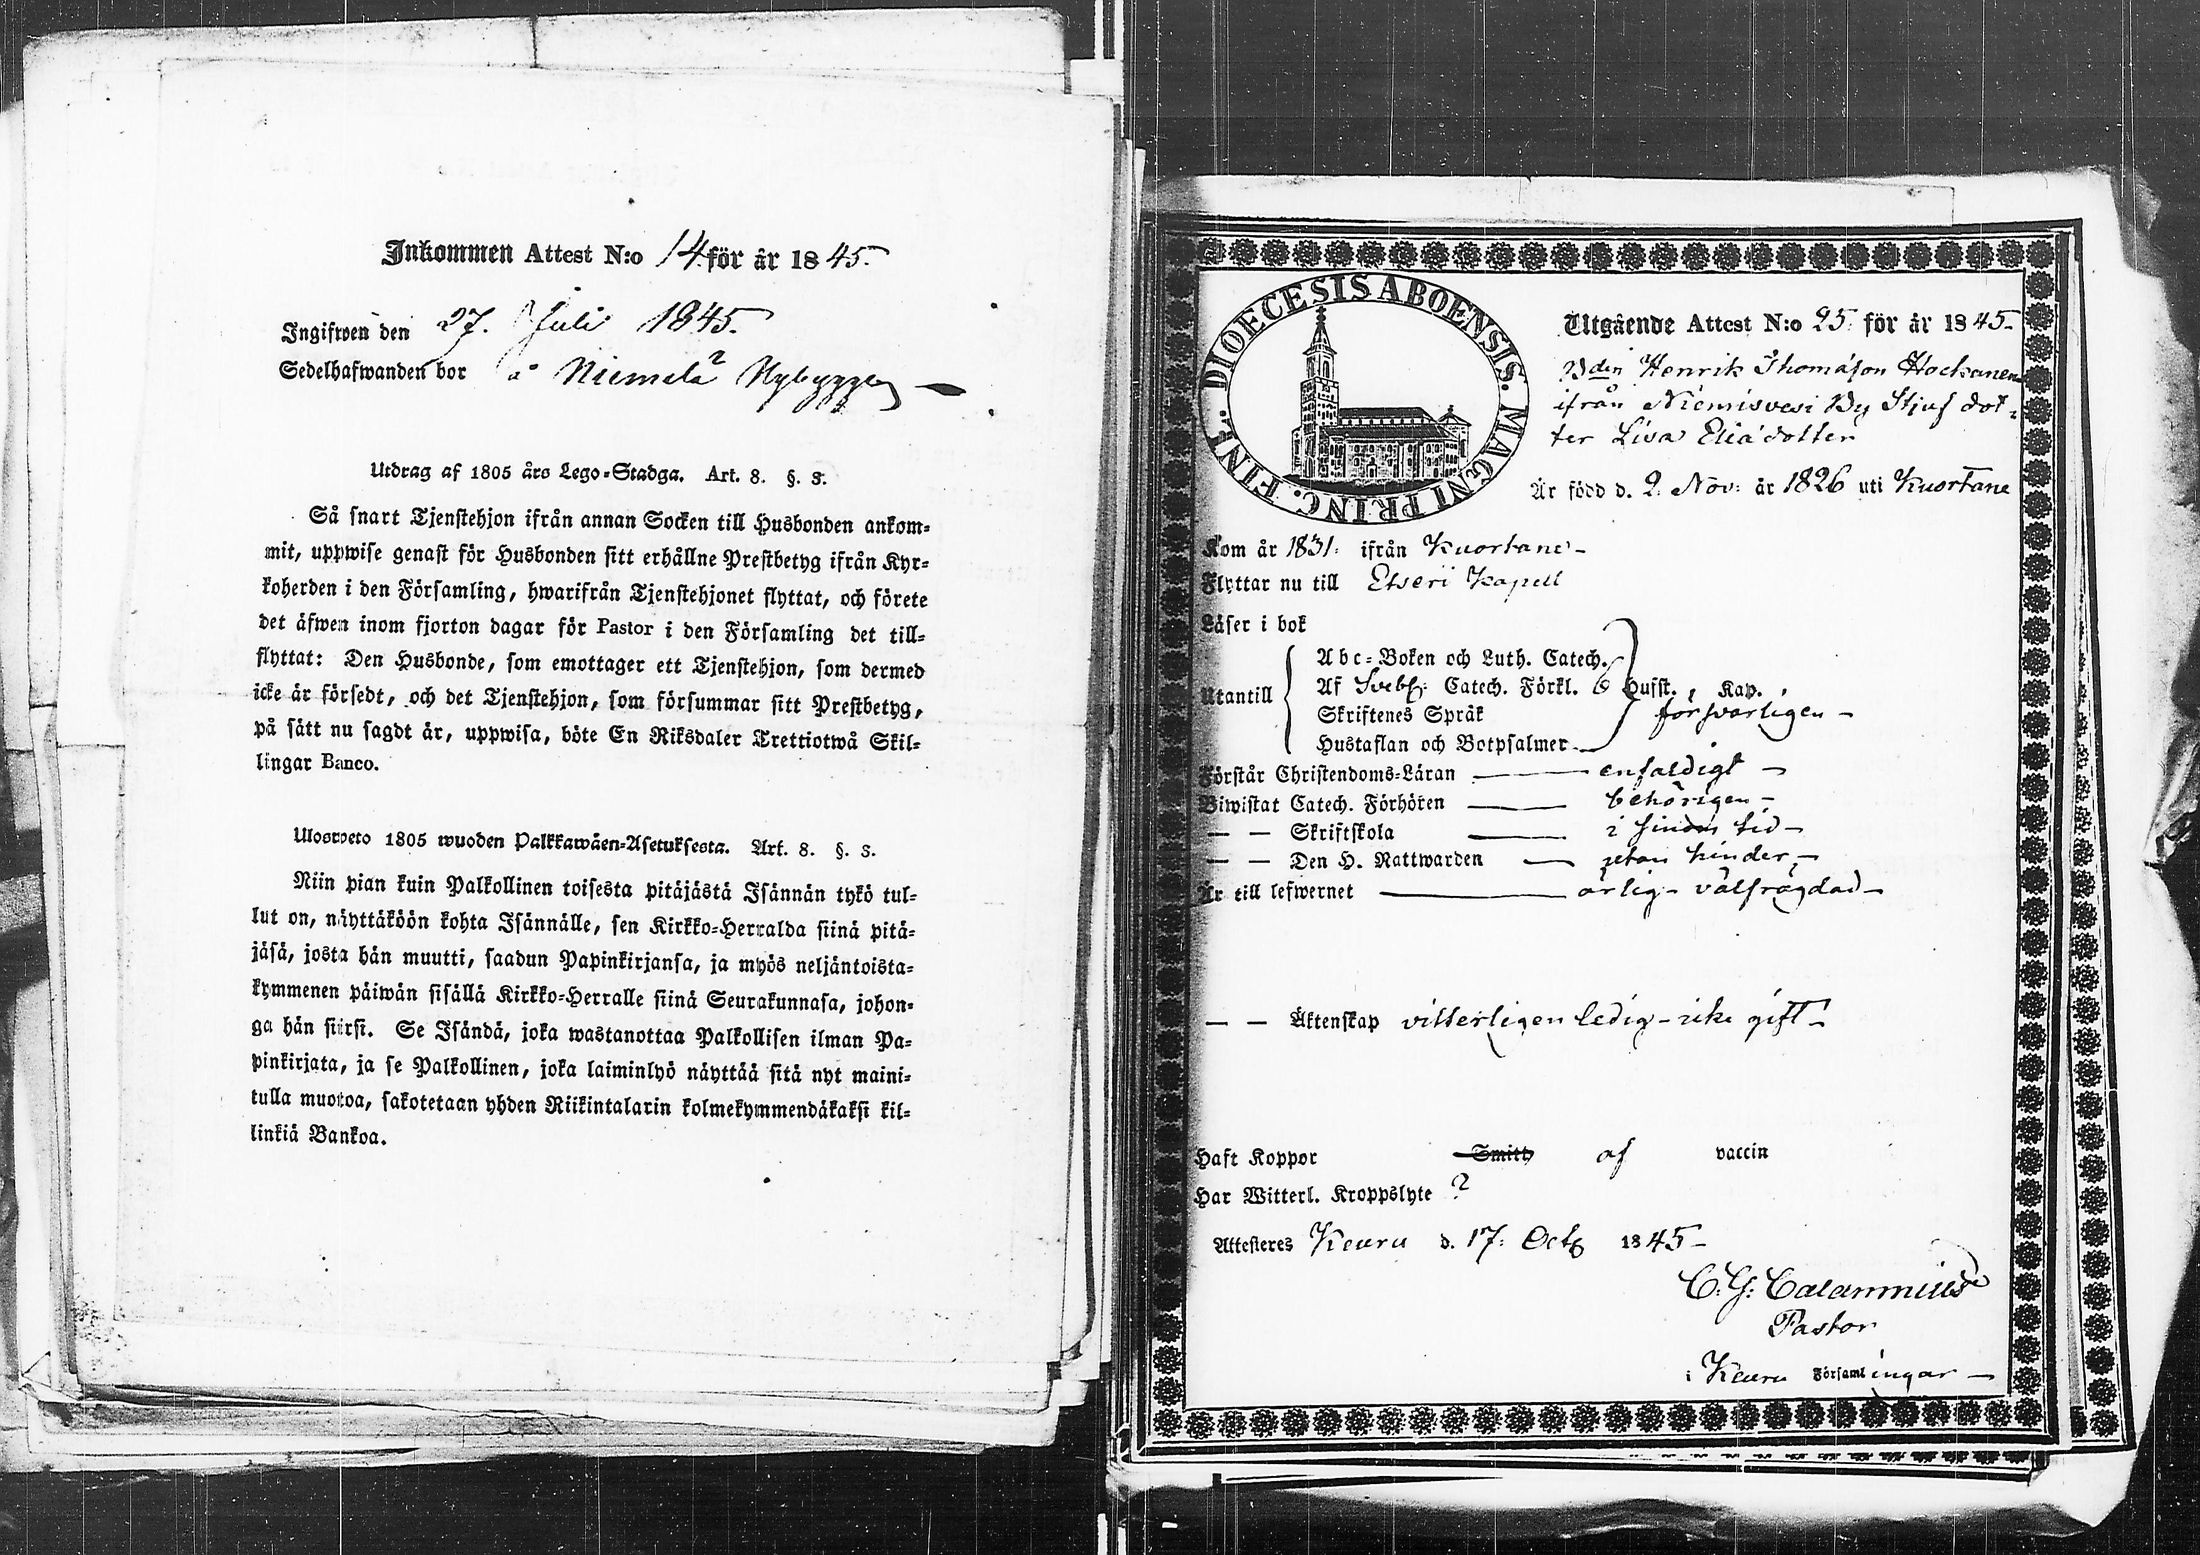 Inkommen Attest N:o 14 för år 1845.
Ingifwen den 27. Juli 1845.
Sedelhafwanden bor å Niemelä Nybygge
Utdrag af 1805 års Lego-Stadga. Art. 8. §. 3.
Så snart Tjenstehjon ifrån annan Socken till Husbonden ankom-
mit, uppwise genast för Husbonden sitt erhållne Prestbetyg ifrån Kyr-
koherden i den Församling, hwarifrån Tjenstehjonet flyttat, och förete
det äfwen inom fjorton dagar för Pastor i den Församling det till-
flyttat: Den Husbonde, som emottager ett Tjenstehjon, som dermed
icke är försedt, och det Tjenstehjon, som försummar sitt Prestbetyg,
på sätt nu sagdt är, uppwisa, böte En Riksdaler Trettiotwå Skil-
lingar Banco.
Ulosweto 1805 wuoden Palkkawäen-Asetuksesta. Art. 8. §. 3.
Niin pian kuin Palkollinen toisesta pitäjästä Isännän tykö tul-
lut on, näyttäköön kohta Isännälle, sen Kirkko-Herralda siinä pitä-
jäsä, josta hän muutti, saadun Papinkirjansa, ja myös neljäntoista-
kymmenen päiwän sisällä Kirkko-Herralle siinä Seurakunnasa, johon-
ga hän siirsi. Se Isändä, joka wastanottaa Palkollisen ilman Pa-
pinkirjata, ja se Palkollinen, joka laiminlyö näyttää sitä nyt maini-
tulla muotoa, sakotetaan yhden Riikintalarin kolmekymmendäkaksi kil-
linkiä Bankoa.
DIOECESIS ABOENSIS. MAGNI PRINC. FINL.
Utgående Attest N:o 25. för år 1845.
Bden Henrik Thomasson Hockanen
ifrån Niemisvesi By Stjuf dot-
ter Lisa Eliädotter
Är född d. 2. Nov: år 1826 uti Kuortane
Kom år 1831: ifrån Kuortane -
Flyttar nu till Etseri Kapell
Läser i bok
Abc-Boken och Luth. Catech.
Utantill Af Svebel: Catech. Förkl. 6 Hufst., Kap.
Skriftenes Språk försvarligen -
Hustaflan och Botpsalmer
Förstår Christendoms-Läran enfaldigt -
Biwistat Catech. Förhören behörigen -
— — Skriftskola i sinom tid -
— — Den H. Nattwarden utan hinder -
Är till lefwernet ärlig - välfrägdad -
— — Äktenskap vitterligen ledig - icke gift -
Haft Koppor Smitt af vaccin
Har Witterl. Kroppslyte ?
Attesteres Keuru d. 17: Octb 1845 -
C. G: Calamnius
Pastor
i Keuru Församlingar -